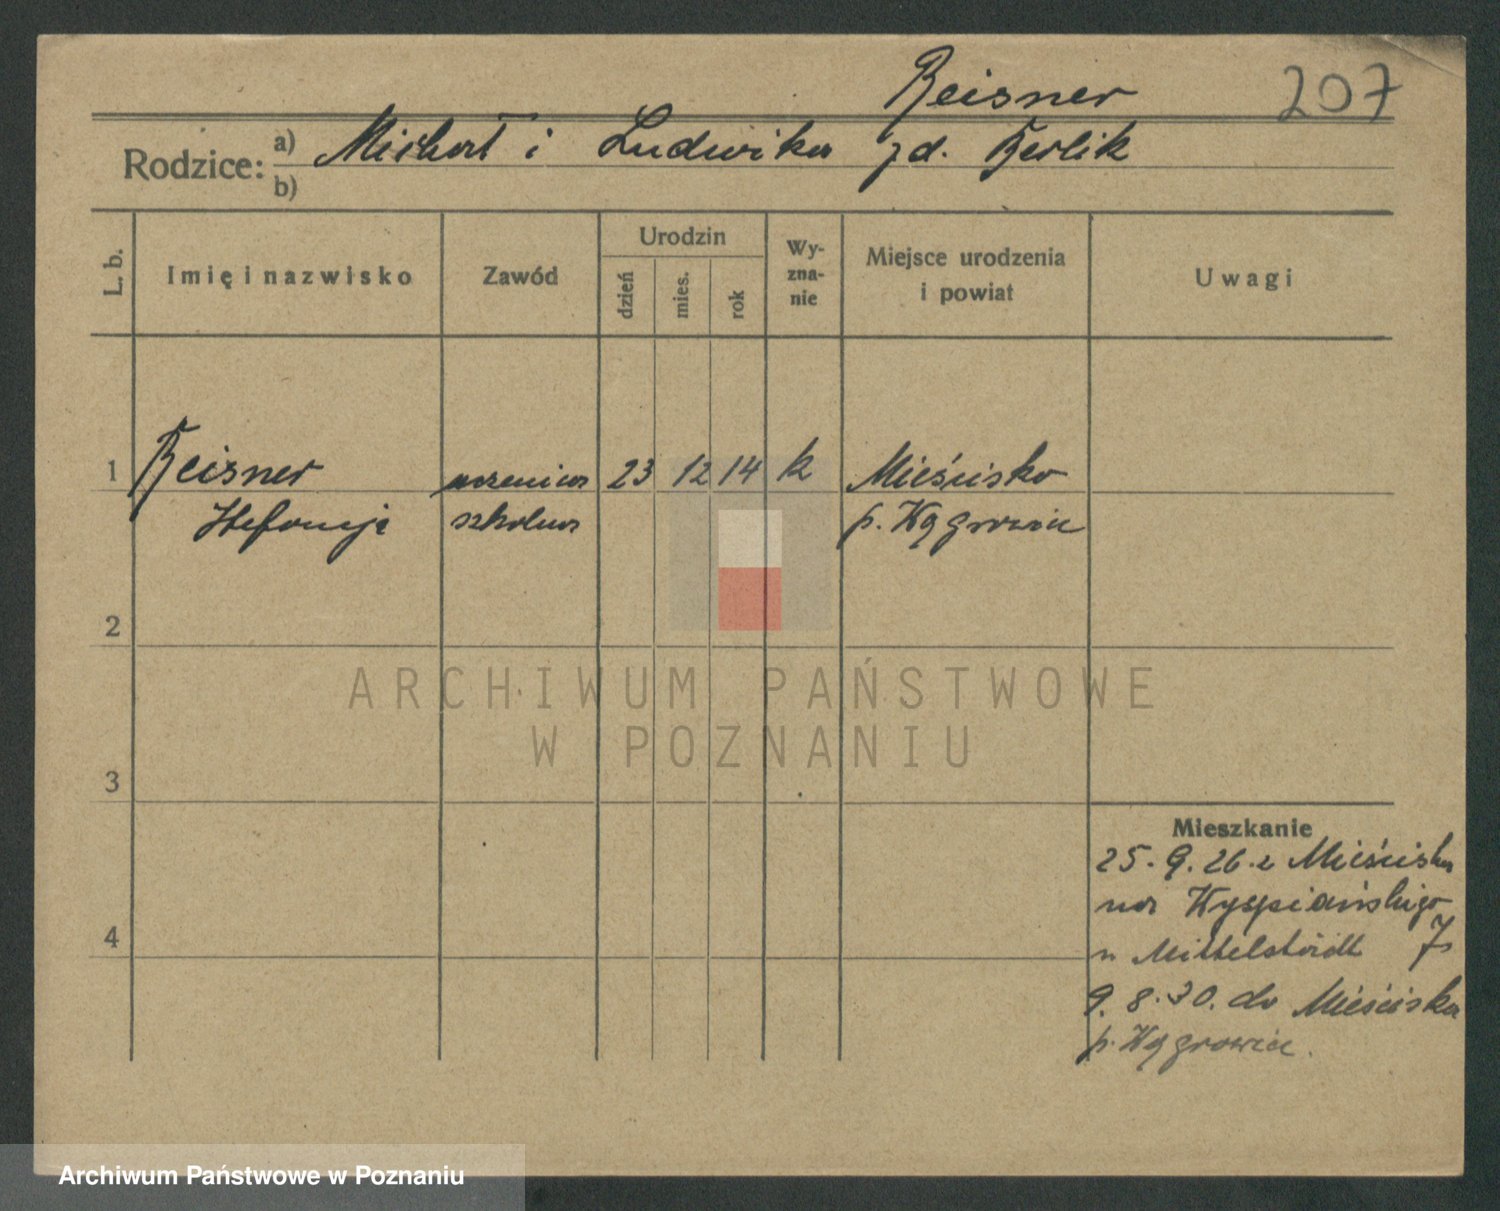 Reisner 207
Rodzice: a) Michał i Ludwika zd. Terlik
b)
L. b. Imię i nazwisko Zawód Urodzin dzień mies. rok Wy-zna-nie Miejsce urodzenia i powiat Uwagi
1 Reisner uczenica 23 12 14 k Mieścisko
Stefanja szkolna p. Wągrowiec
2
3
4
Mieszkanie
25. 9. 26. z Mieściska
na Wyspiańskiego
u Mittelstädt 7
9. 8. 30. do Mieściska
p. Wągrowiec.
ARCHIWUM PAŃSTWOWE
W POZNANIU
Archiwum Państwowe w Poznaniu